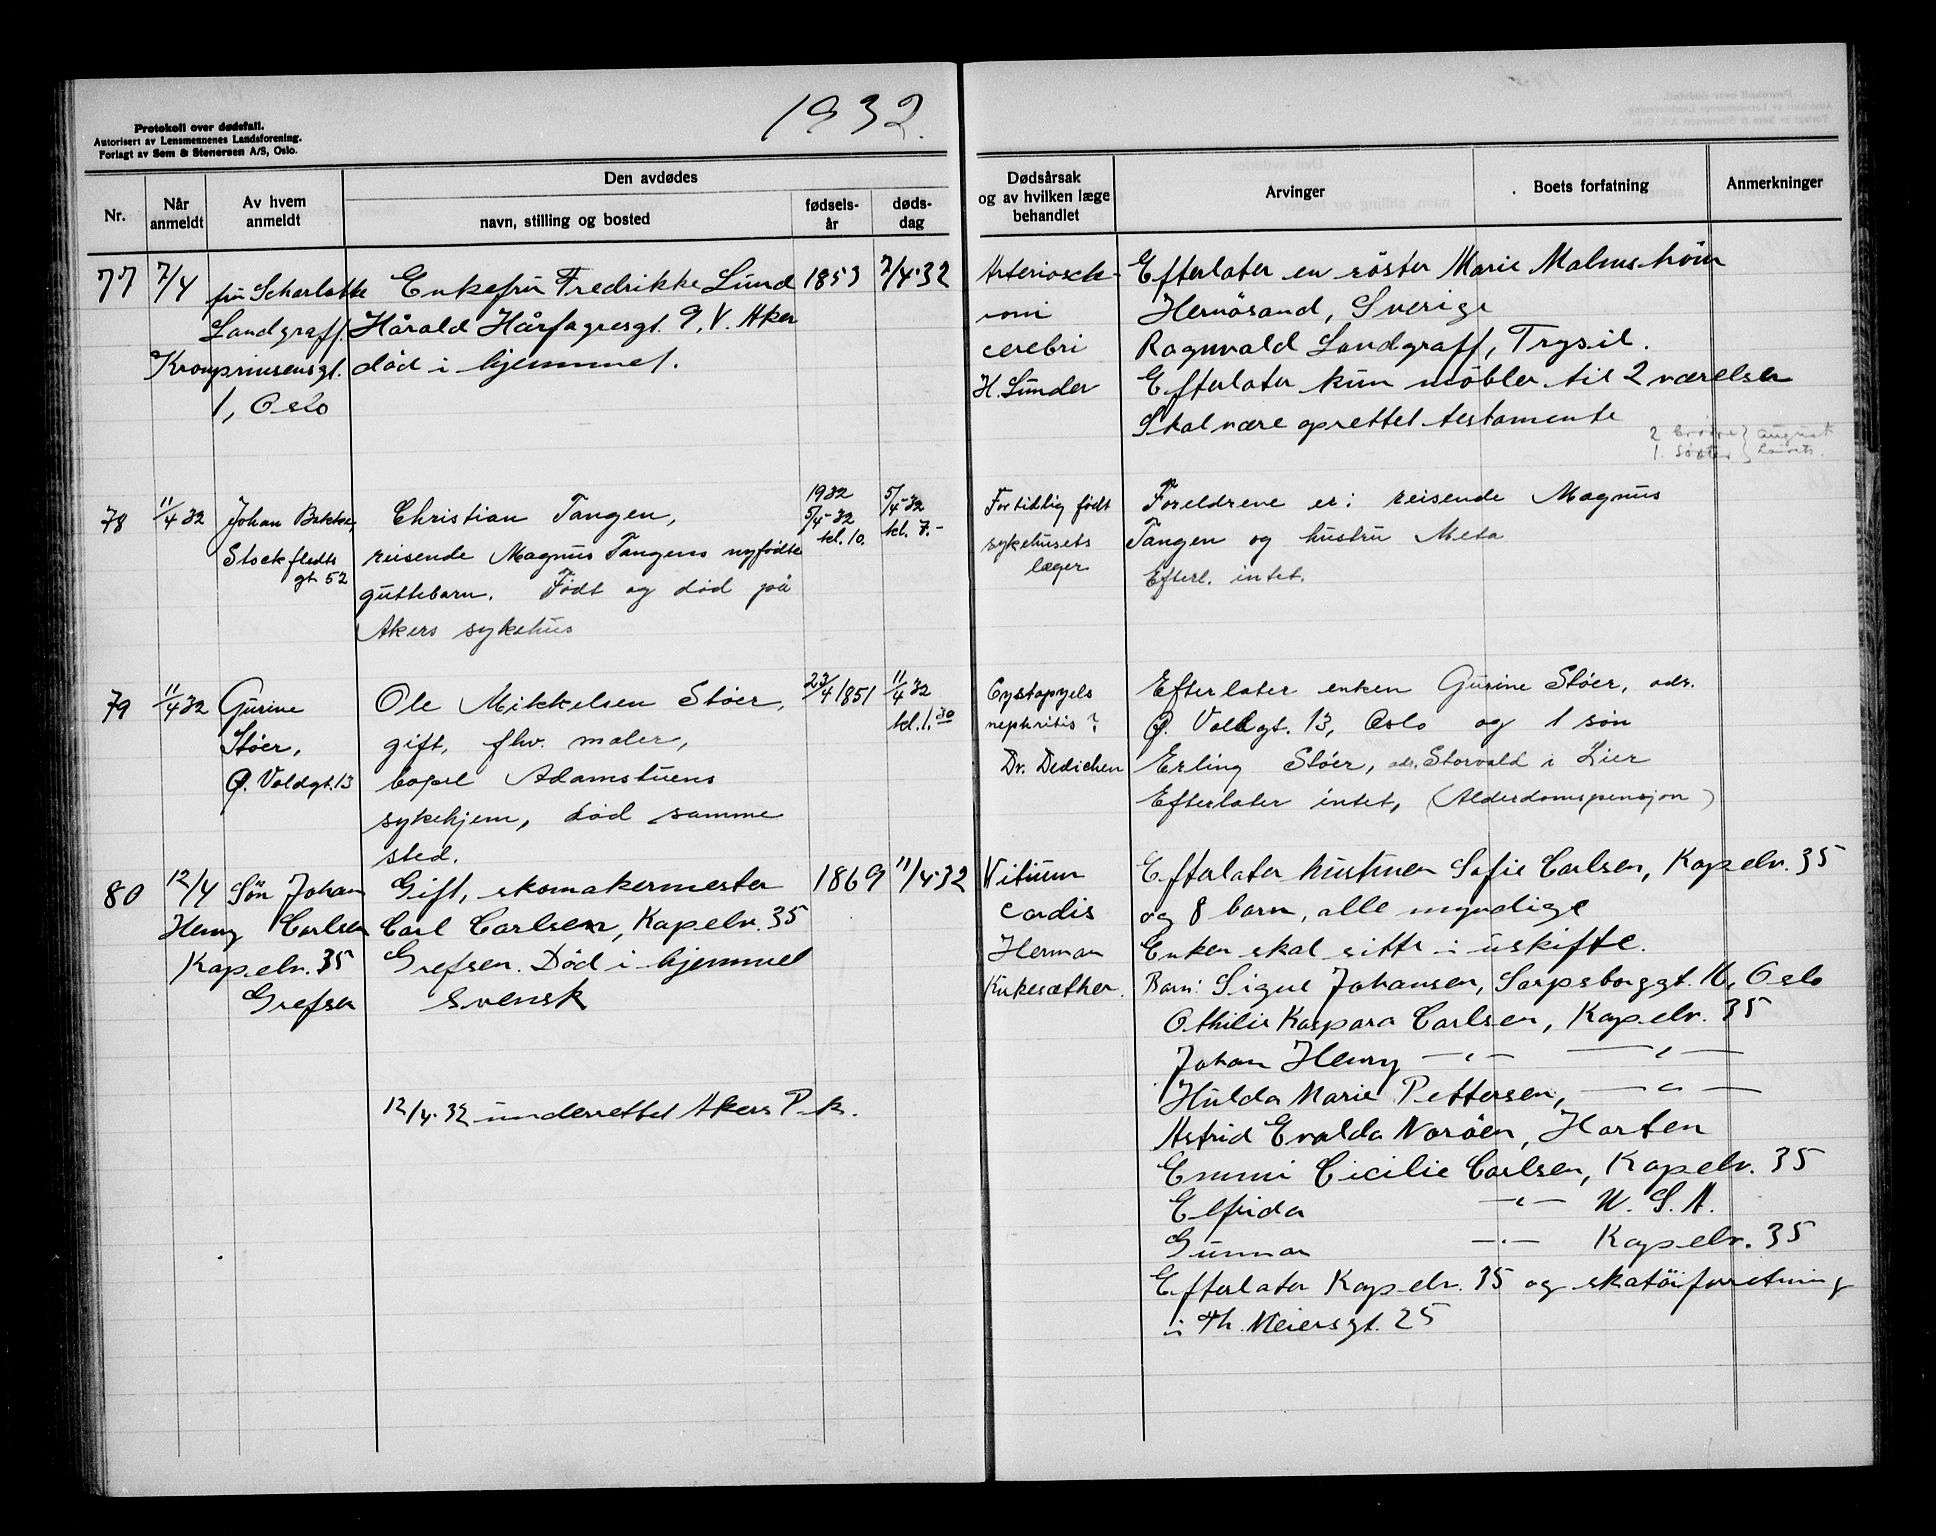 1932.
Protokoll over dødsfall.
Autorisert av Lensmennenes Landsforening.
Forlagt av Sem & Stenersen A/S, Oslo.
Nr.
Når anmeldt
Av hvem anmeldt
Den avdødes
navn, stilling og bosted
fødsels-år
døds-dag
Dødsårsak
og av hvilken læge
behandlet
Arvinger
Boets forfatning
Anmerkninger
77 7/4 fru Scharlotte Enkefru Fredrikke Lund 1853 7/4-32
Landgraff. Hårald Hårfagresgt. 9, V. Aker
Kronprinsensgt. død i hjemmet.
1, Oslo
Arteriosck-
cerebri
H. Lunder
Efterlater en søster Marie Malmström
Hernösand, Sverige
Ragnvald Landgraff, Trysil.
Efterlater kun møbler til 2 værelser
Skal være oprettet testamente
2 brødre } August
1. søster } Lauritz.
78 11/4 32 Johan Bakke, Christian Tangen, 1932 5/4-32
Stockfledts reisende Magnus Tangens nyfødte 5/4-32 kl. 7.-
gt. 52 guttebarn. Født og død på kl. 10.
Akers sykehus
For tidlig født
sykehusets
læger
Foreldrene er: reisende Magnus
Tangen og hustru Meta
Efterl. intet.
79 11/4 32 Gurine Ole Mikkelsen Støer, 23/4 1851 11/4 32
Støer, gift, fhv. maler, kl. 1.30
Ø. Voldgt. 13 bopel Adamstuens
sykehjem, død samme
sted.
Cystopyels
nephritis?
Dr. Dedichen
Efterlater enken Gurine Støer, adr.
Ø. Voldgt. 13, Oslo og 1 søn
Erling Støer, adr. Storvald i Lier
Efterlater intet, (Alderdomspensjon)
80 12/4 Søn Johan Gift, skomakermester 1869 11/4-32
Henry Carlsen Carl Carlsen, Kapelv. 35
Kapelv. 35 Grefsen. Død i hjemmet
Grefsen Svensk
12/4-32 underrettet Akers P.k.
Vitium
cordis
Herman
Kirkesæther.
Efterlater hustruen Sofie Carlsen, Kapelv. 35
og 8 barn, alle myndige
Enken skal sitte i uskifte.
Barn: Signe Johansen, Sarpsborggt. 16, Oslo
Othilie Kaspara Carlsen, Kapelv. 35
Johan Henry —"— —"—
Hulda Marie Pettersen, —"—
Astrid Evalda Norøen, Horten
Emmi Cicilie Carlsen, Kapelv. 35
Elfrida —"— U.S.A.
Gunnar —"— Kapelv. 35
Efterlater Kapelv. 35 og skotøiforretning
i Th. Meiersgt. 25